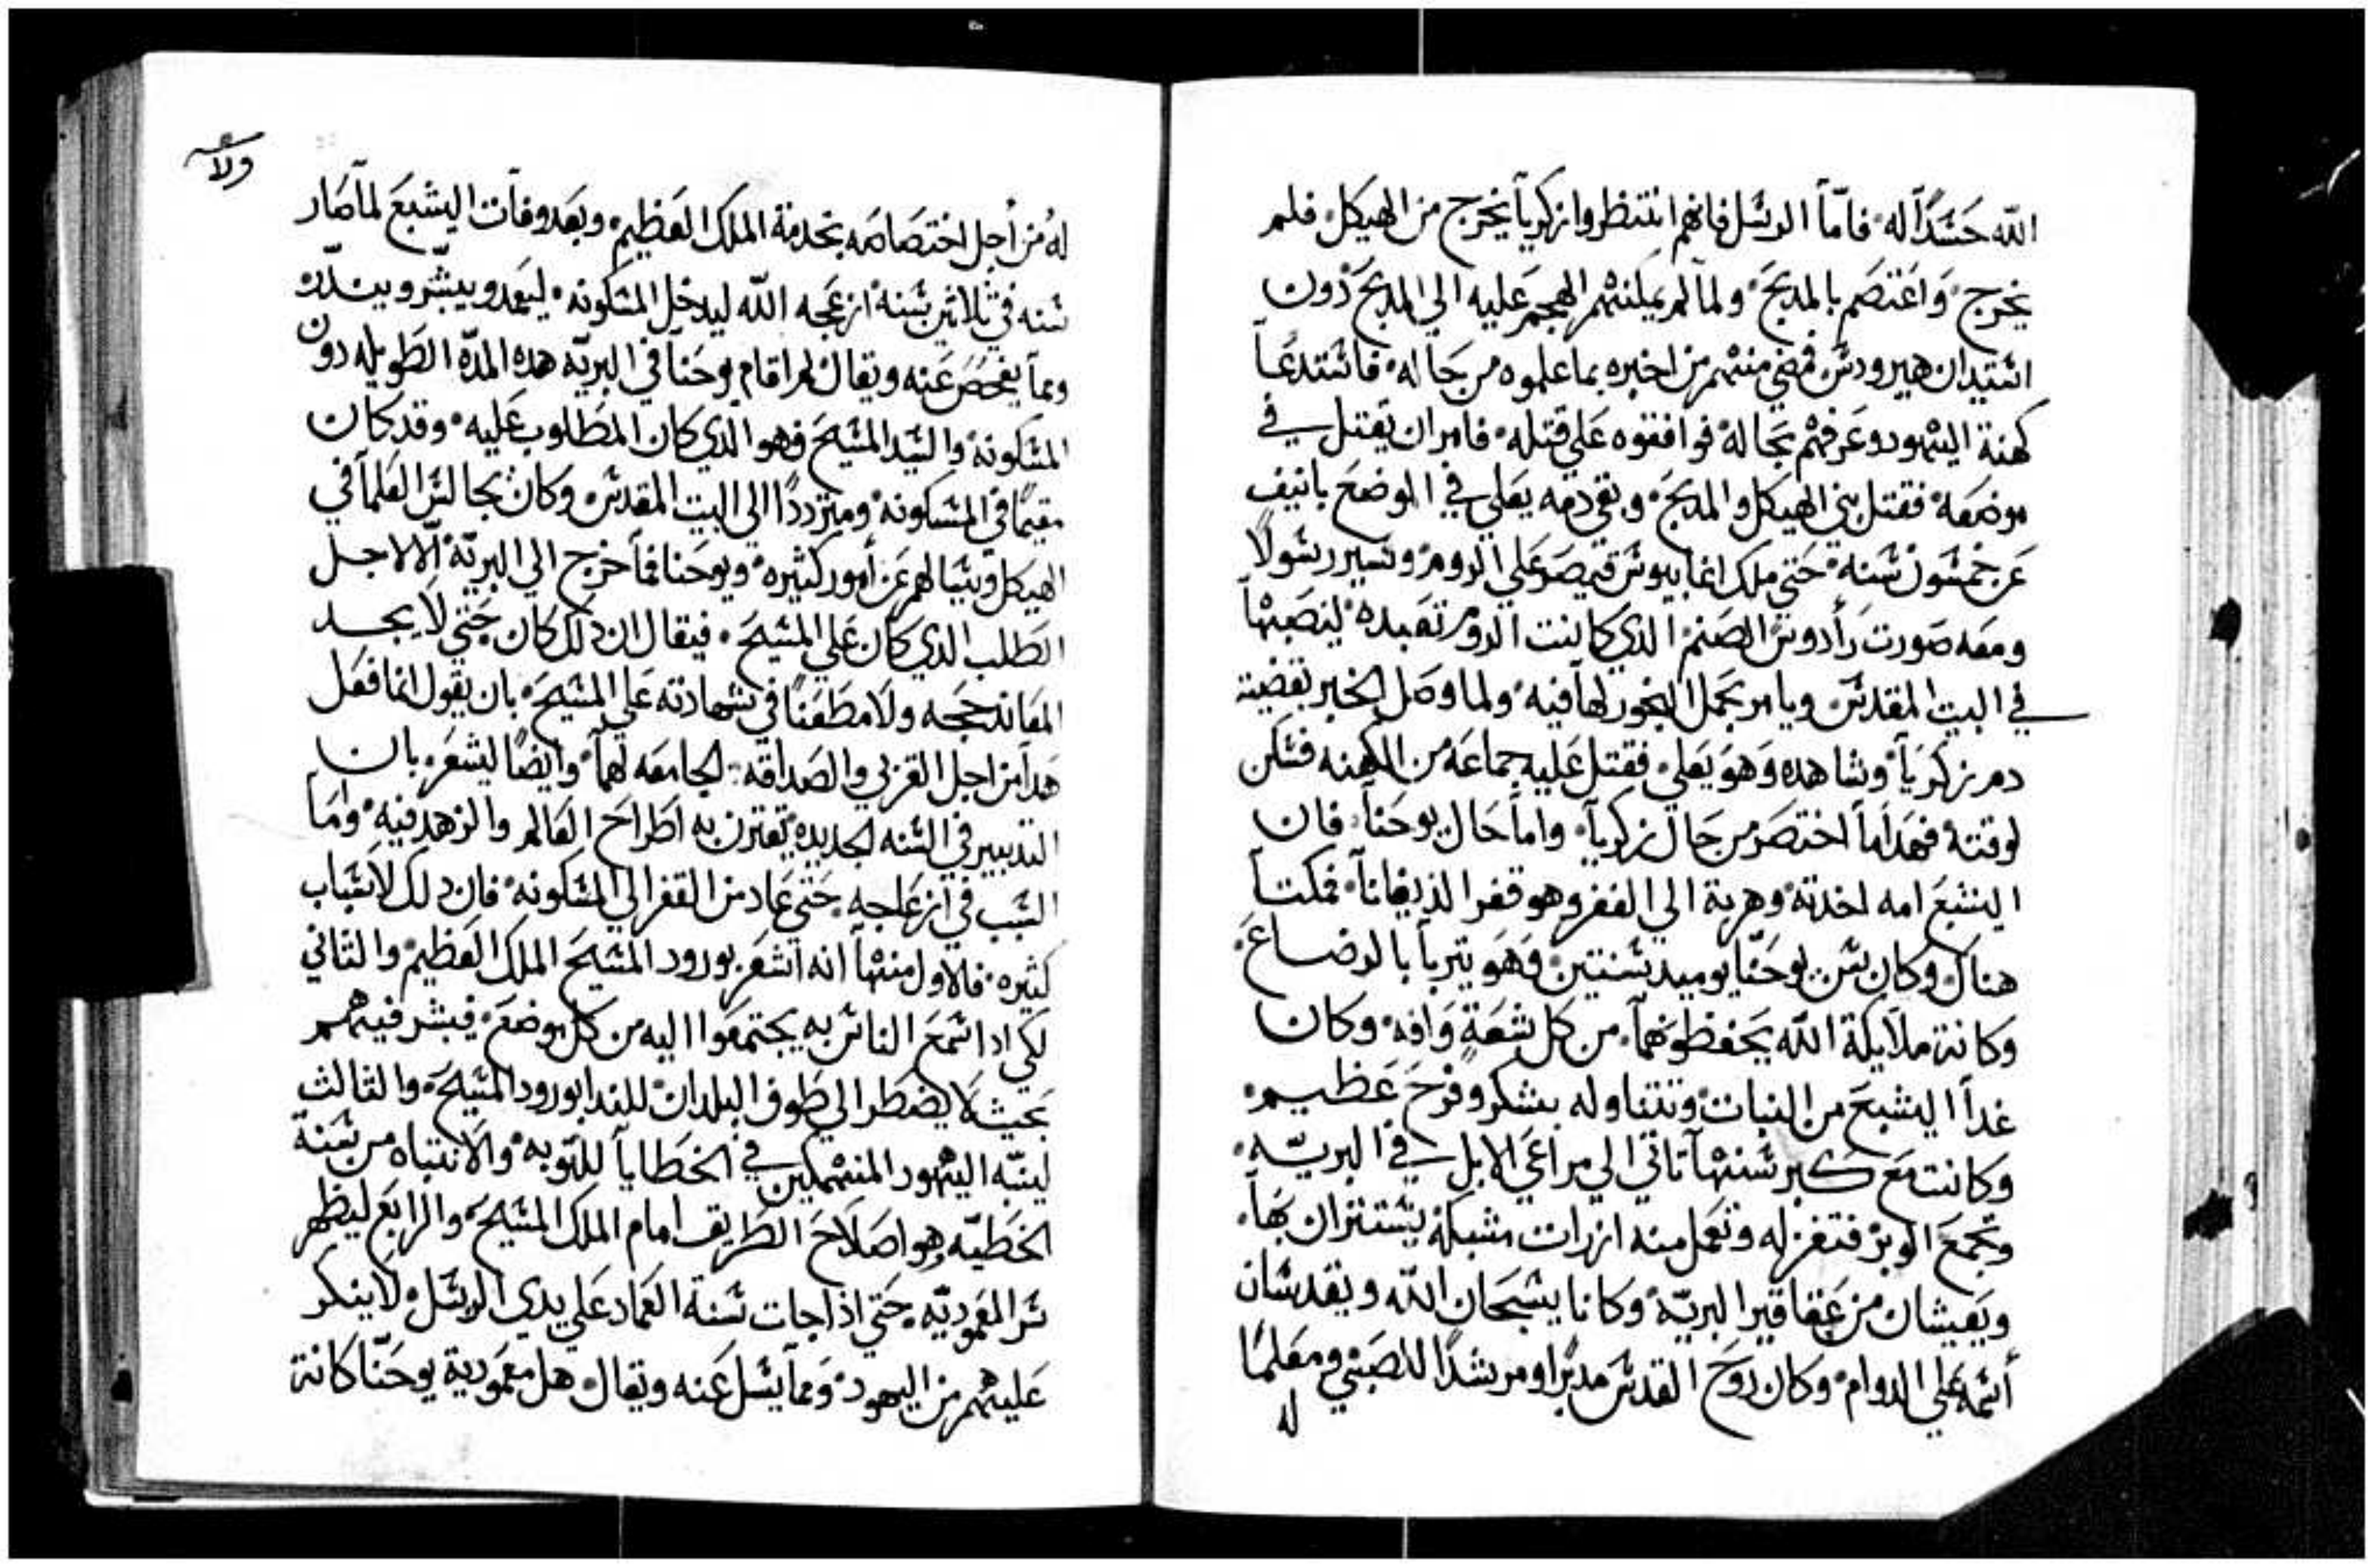 الله حَسَدًا له فامّا الرسل فانهم انتظروا زكريا يخرج من الهيكل فلم
يخرج واعتصم بالمدبح ولما لم يمكنهم الهجم عليه الي المدبح دون
استيدان هيرودس فمضي منهم من اخبره بما علموه من حاله فاستدعا
كهنة اليهود وعرفهم بحاله فوافقوه علي قتله فامر ان يقتل في
موضعه فقتل بين الهيكل والمدبح وبقي دمه يغلي في الموضع بانيف
عن خمسون سنه حتي ملك اغابيوس قيصر علي الروم وسير رسولًا
ومعه صورت رأدوس الصنم الذي كانت الروم تعبده لينصبها
في البيت المقدس ويامر بحمل البخور لها فيه ولما وصل الخبر بقضية
دم زكريا وشاهده وهو يغلي فقتل عليه جماعه من الكهنه فسكن
لوقته فهدا ما اختصر من حال زكريا واما حال يوحنا فان
اليشبع امه اخدته وهربة الي القفر وهو قفر الذيفانا فمكتا
هناك وكان سن يوحنّا يوميد سنتين وهو يتربا بالرضاع
وكانة ملايكة الله يحفظونهما من كل شعةٍ وافه وكان
غدا اليشبع من النبات وتتناوله بشكر وفرح عظيم
وكانت مع كبر سنها تاتي الي مراعي الابل في البريّه
وتجمع الوبر فتغزله وتعمل منه ازرات مشبكة يستتران بها
ويعيشان من عقاقير البريّه وكانا يسبحان الله ويقدسان
أسمه علي الدوام وكان روح القدس مدبرا ومرشدًا للصبي ومعلمًا
له
ولا
له من أجل اختصاصه بخدمة الملك العظيم وبعد وفات اليشبع لما صار
سنه في ثلاثين سنه ازعجه الله ليدخل المسكونه ليعمد ويبشّر وينذر
ومما يفحص عنه ويقال لم اقام يوحنا في البريّه هده المدّه الطويله دون
المسكونه والسيد المسيح فهو الدي كان المطلوب عليه وقد كان
مقيمًا في المسكونه ومترددًا الي البيت المقدس وكان يجالس العلما في
الهيكل ويسالهم عن أمور كثيره ويوحنا فما خرج الي البريّة الّا لاجل
الطلب الدي كان علي المسيح فيقال ان دلك كان حتي لا يجد
المعاند حجه ولا مطعنًا في شهادته علي المسيح بان يقول انما فعل
هدا من اجل القربي والصداقه الجامعه لهما وايضًا ليشعر بان
التدبير في السنه الجديده تقترن به اطراح العالم والزهد فيه وأما
السبب في ازعاجه حتي عاد من القفر الي المسكونه فان دلك لاسباب
كثيره فالاول منها انه اشعر بورود المسيح الملك العظيم والثاني
لكي ادا سمع الناس به يجتمعوا اليه من كل موضع فيبشر فيهم
بحيث لا يضطر الي طوف البلدان للندا بورود المسيح والثالث
لينبّه اليهود المنهمكين في الخطايا للتوبه والانتباه من سنة
الخطيّه وهو اصلاح الطريق امام الملك المسيح والرابع ليظهر
سر المعموديّه حتي اذا جات سنة العماد علي يدي الرسل لا ينكر
عليهم من اليهود ومما يسل عنه ويقال هل معمودية يوحنّا كانة